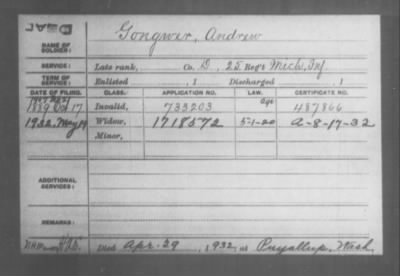 DEAD
NAME OF SOLDIER: Gongwer, Andrew
SERVICE: Late rank, Co. D, 25 Reg't Mich. Inf.
TERM OF SERVICE: Enlisted , 1 Discharged , 1
DATE OF FILING. CLASS. APPLICATION NO. LAW. CERTIFICATE NO.
1889 Oct 17 Invalid, 733203 487866
1932. May Widow, 1718572 5-1-20 A-8-17-32
Minor,
ADDITIONAL SERVICES:
REMARKS:
Died Apr. 29, 1932, at Puyallup, Wash.